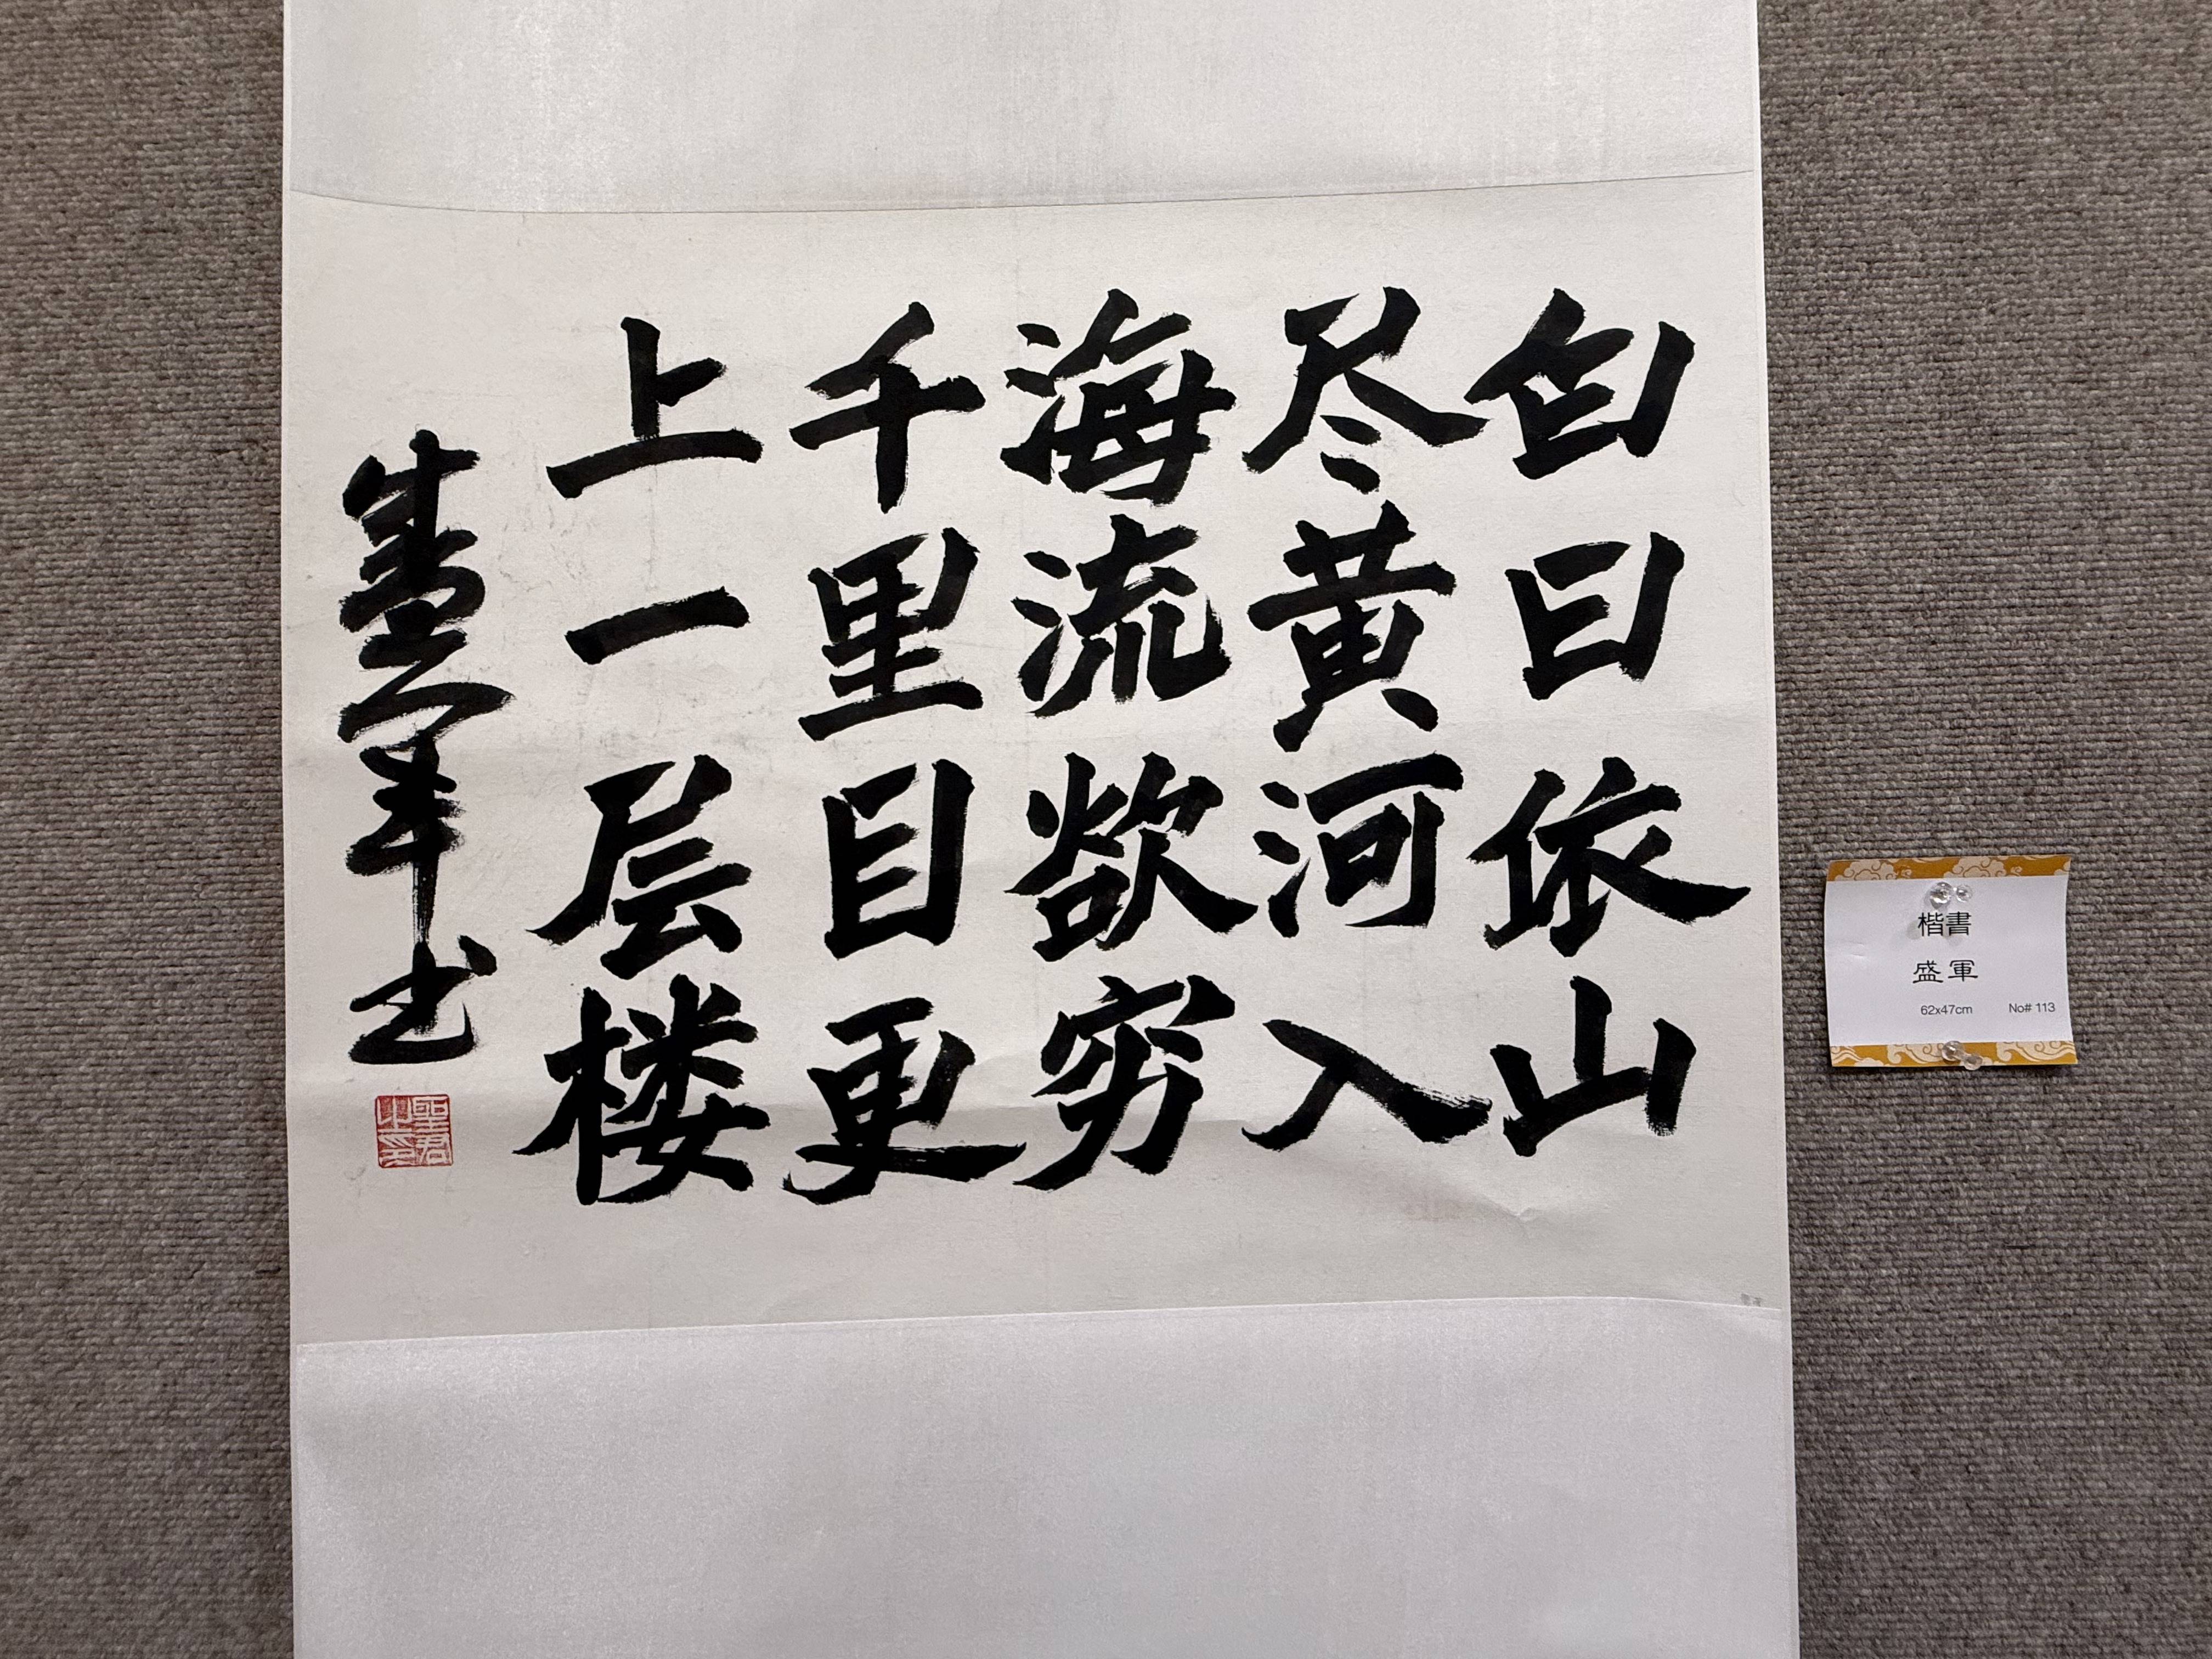 白日依山
尽黄河入
海流欲穷
千里目更
上一层楼
书
楷書
盛軍
62x47cm No# 113